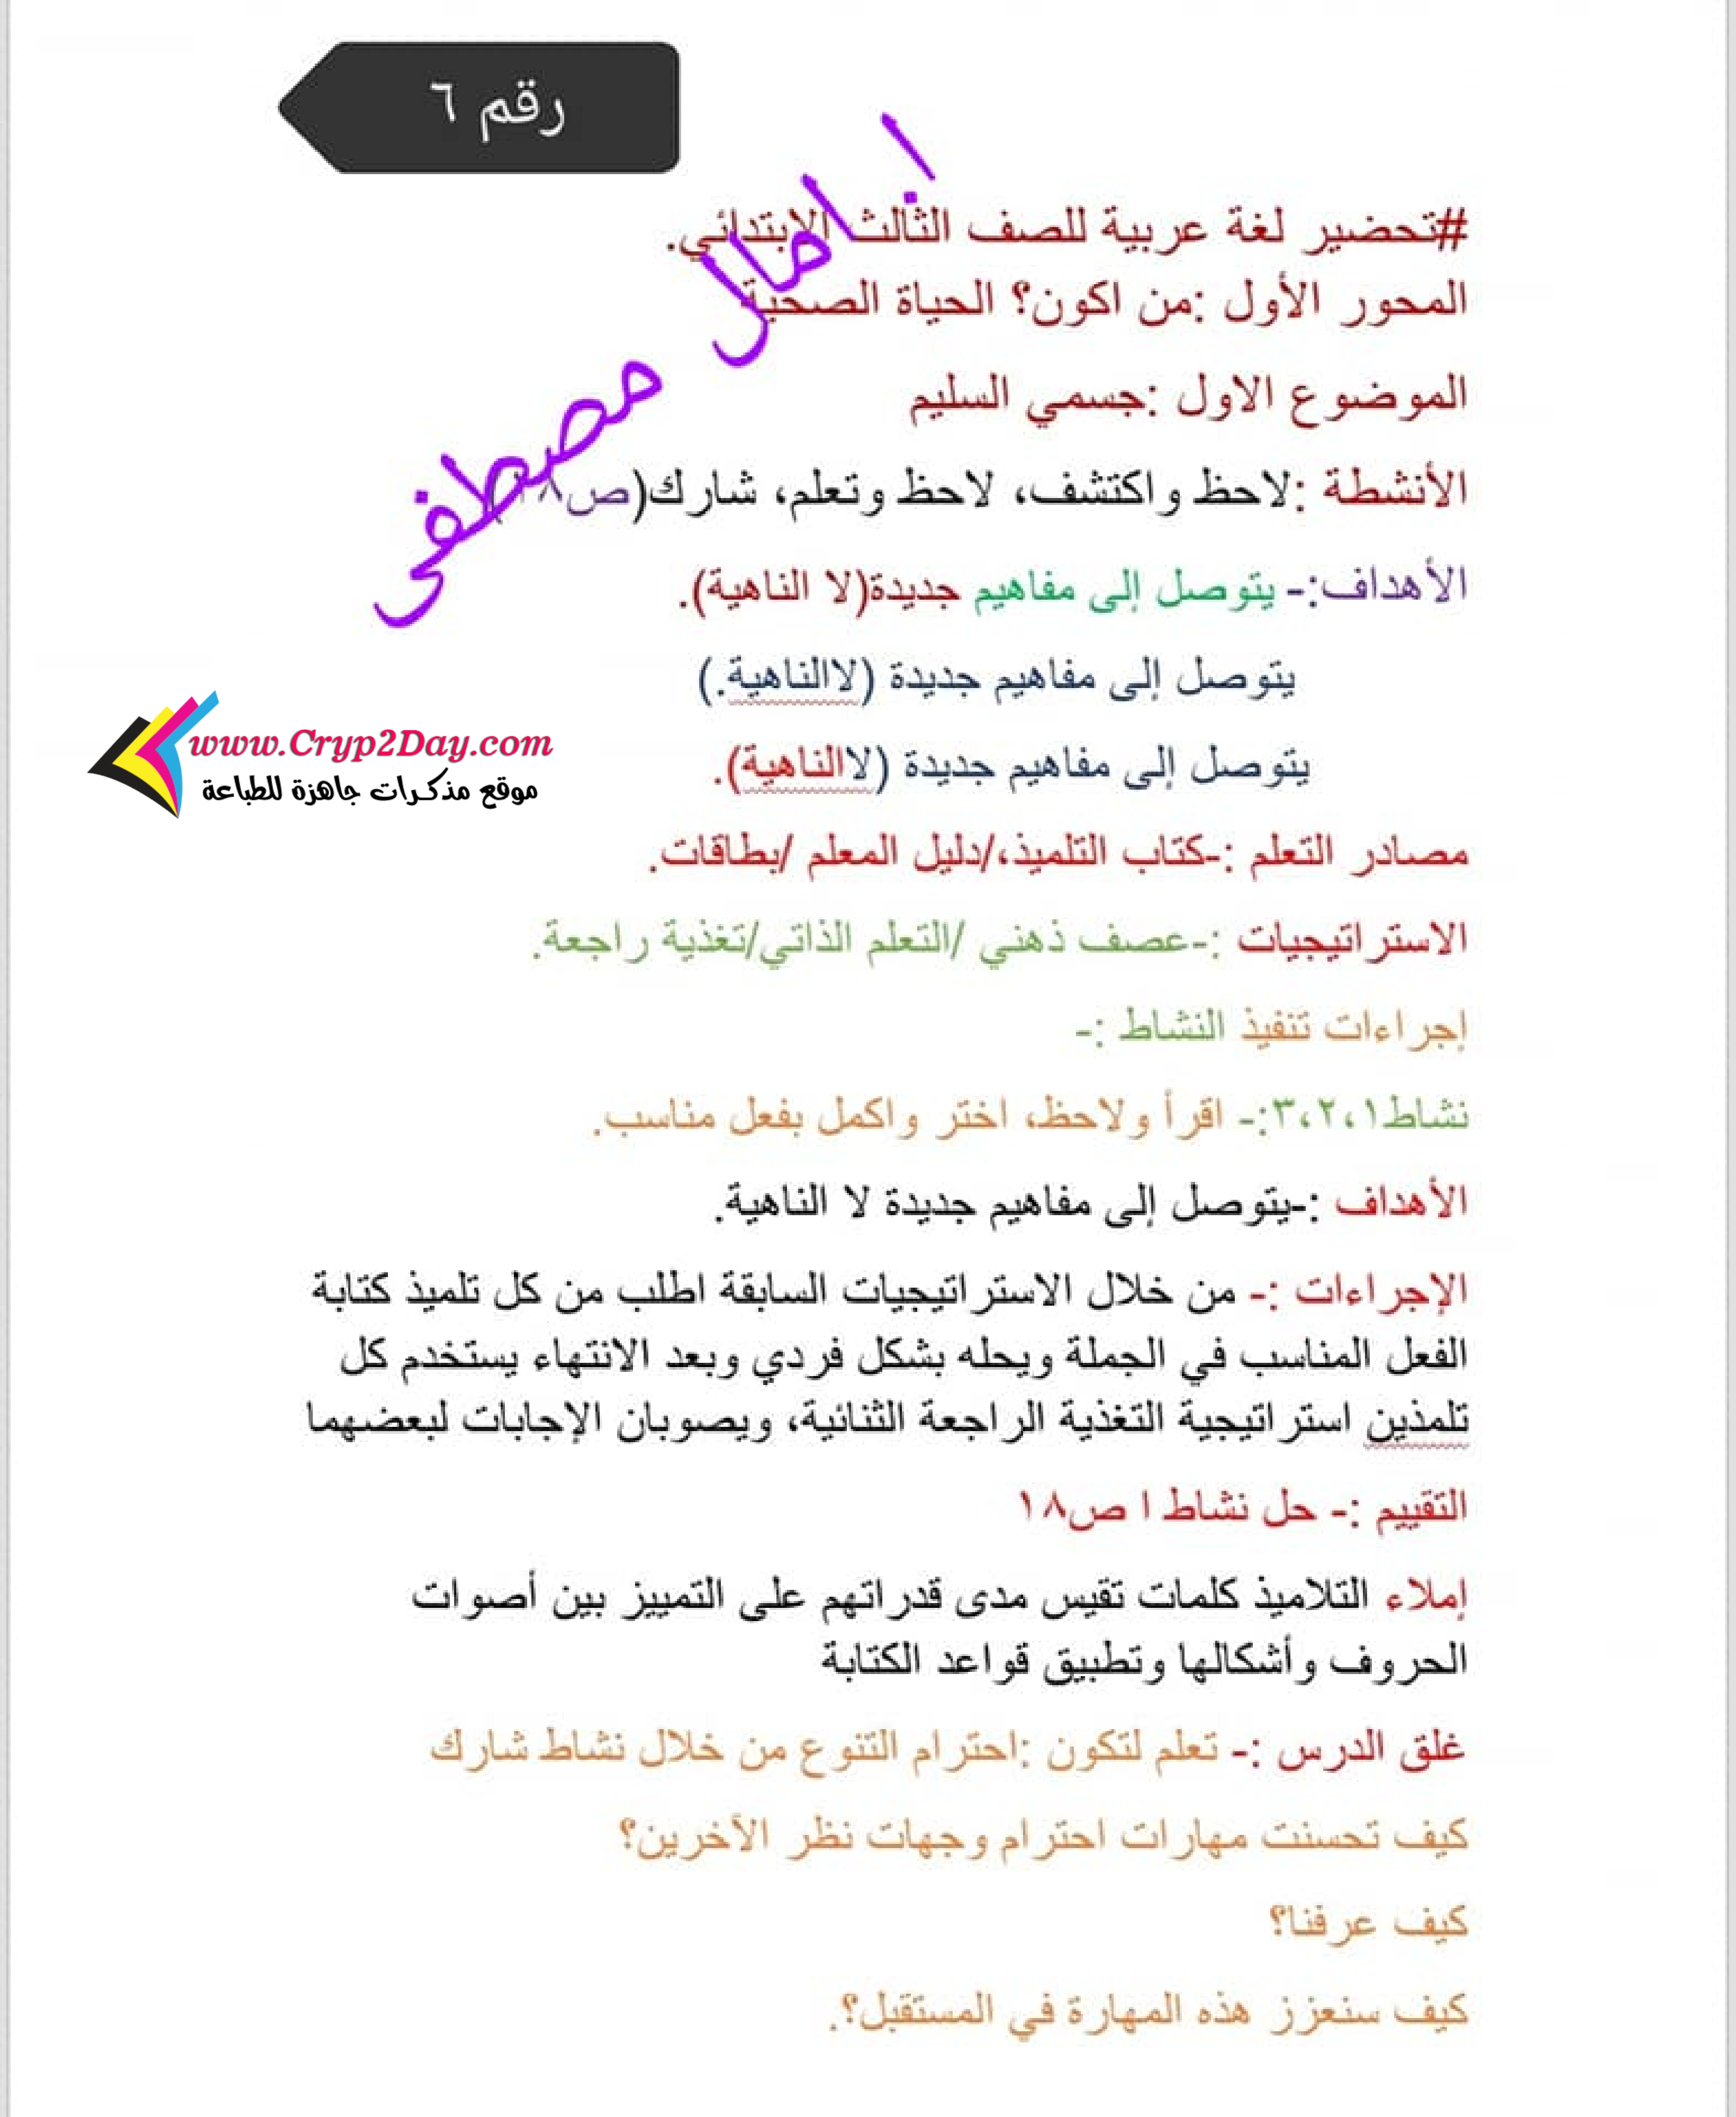 رقم ٦
#تحضير لغة عربية للصف الثالث الابتدائي.
المحور الأول :من اكون؟ الحياة الصحية
الموضوع الاول :جسمي السليم
الأنشطة :لاحظ واكتشف، لاحظ وتعلم، شارك(ص١٨)
الأهداف:- يتوصل إلى مفاهيم جديدة(لا الناهية).
يتوصل إلى مفاهيم جديدة (لاالناهية.)
يتوصل إلى مفاهيم جديدة (لاالناهية).
مصادر التعلم :-كتاب التلميذ،/دليل المعلم /بطاقات.
الاستراتيجيات :-عصف ذهني /التعلم الذاتي/تغذية راجعة.
إجراءات تنفيذ النشاط :-
نشاط٣،٢،١:- اقرأ ولاحظ، اختر واكمل بفعل مناسب.
الأهداف :-يتوصل إلى مفاهيم جديدة لا الناهية.
الإجراءات :- من خلال الاستراتيجيات السابقة اطلب من كل تلميذ كتابة
الفعل المناسب في الجملة ويحله بشكل فردي وبعد الانتهاء يستخدم كل
تلمذين استراتيجية التغذية الراجعة الثنائية، ويصوبان الإجابات لبعضهما
التقييم :- حل نشاط ا ص١٨
إملاء التلاميذ كلمات تقيس مدى قدراتهم على التمييز بين أصوات
الحروف وأشكالها وتطبيق قواعد الكتابة
غلق الدرس :- تعلم لتكون :احترام التنوع من خلال نشاط شارك
كيف تحسنت مهارات احترام وجهات نظر الآخرين؟
كيف عرفنا؟
كيف سنعزز هذه المهارة في المستقبل؟.
ا. امال مصطفى
www.Cryp2Day.com
موقع مذكرات جاهزة للطباعة